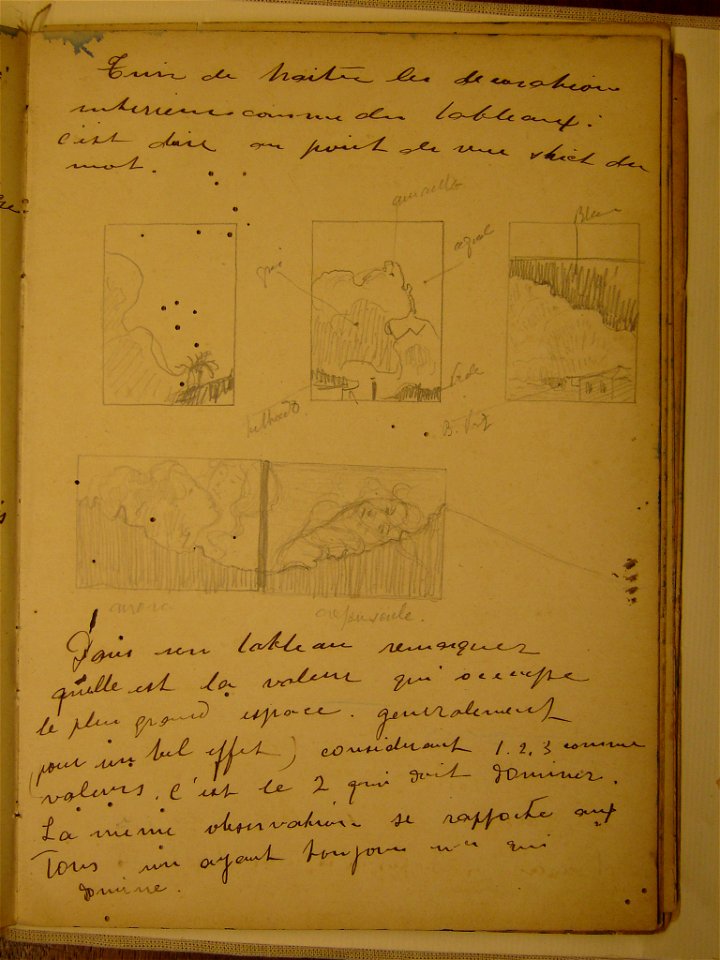 de traiter les decorations
interieures comme des tableaux:
c'est dire au point de vue strict du
mot.
aquarelle
Bleu
gris
B. Vert
crepuscule.
Dans un tableau remarquez
quelle est la valeur qui occupe
le plus grand espace. generalement
(pour un bel effet) considerant 1. 2. 3 comme
valeurs. c'est le 2 qui doit dominer.
La meme observation se rapporte aux
Tons un ayant toujours un qui
domine.